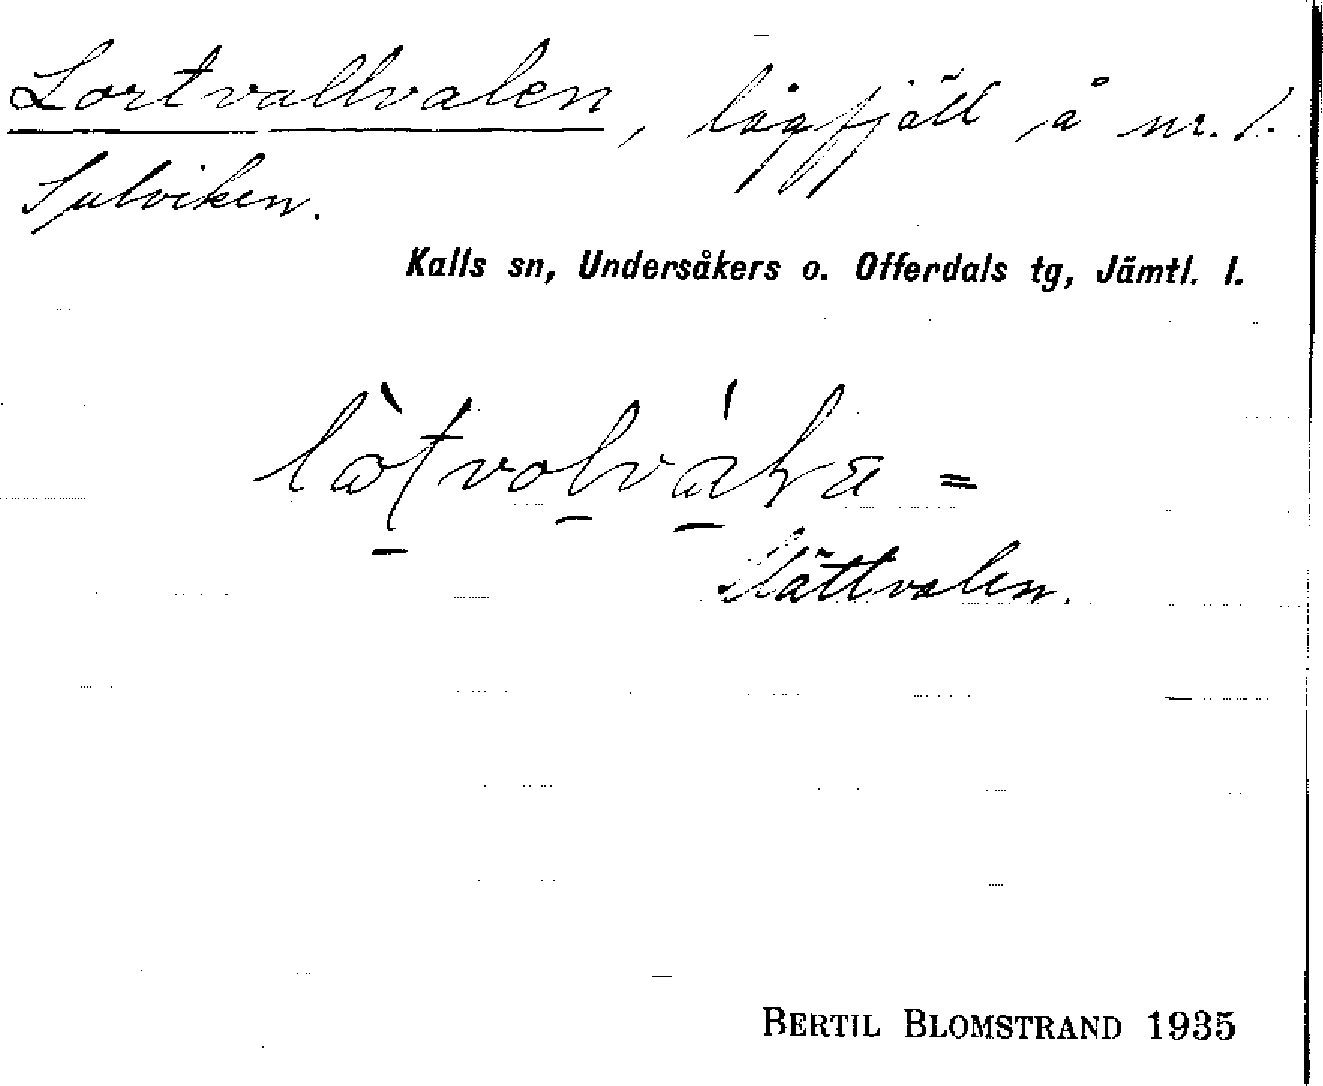 Lortvallvalen, lågfjäll å nr. 1.
Sulviken.
Kalls sn, Undersåkers o. Offerdals tg, Jämtl. l.
=
Slåttvalen.
BERTIL BLOMSTRAND 1935